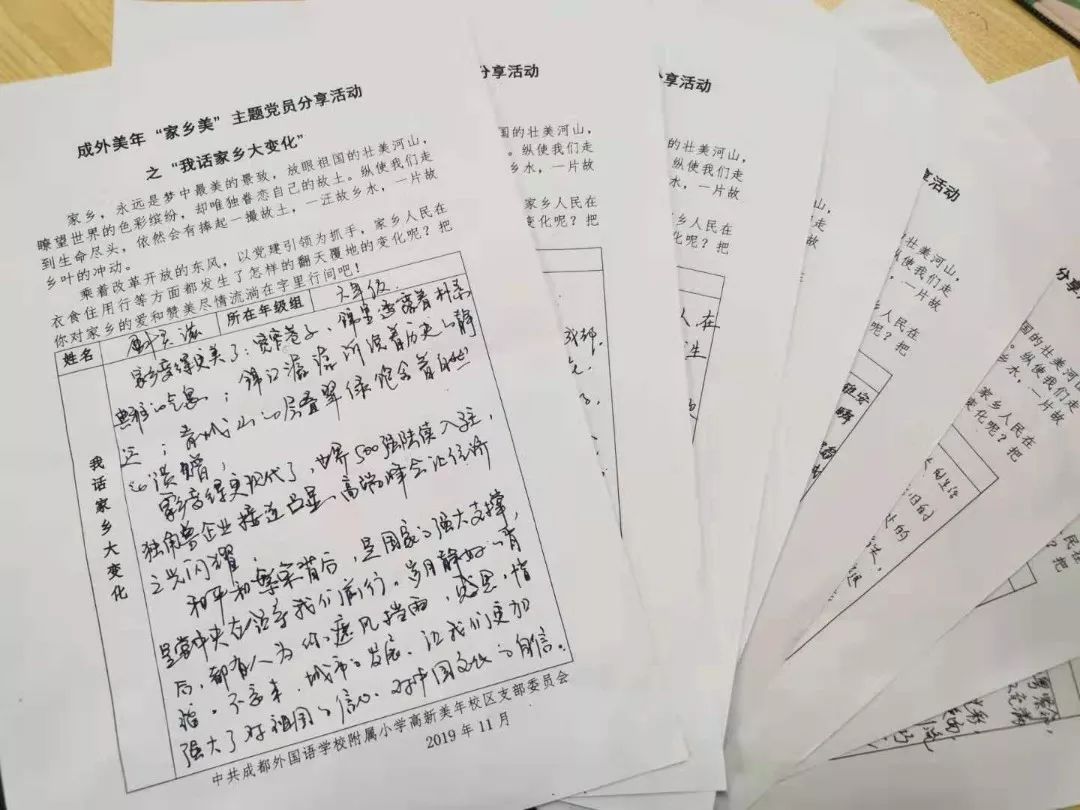 成外美年“家乡美”主题党员分享活动
之“我话家乡大变化”
家乡，永远是梦中最美的景致，放眼祖国的壮美河山，
瞭望世界的色彩缤纷，却唯独眷恋自己的故土。纵使我们走
到生命尽头，依然会有捧起一撮故土，一汪故乡水，一片故
乡叶的冲动。
乘着改革开放的东风，以党建引领为抓手，家乡人民在
衣食住用行等方面都发生了怎样的翻天覆地的变化呢？把
你对家乡的爱和赞美尽情流淌在字里行间吧！
姓名
所在年级组
六年级
我话家乡大变化
家乡变得更美了：宽窄巷子、锦里透露着朴素
典雅的气息；锦江潺潺诉说着历史的静
；青城山的层叠翠绿饱含着自然
的馈赠，
家乡变得更现代了，世界500强陆续入驻，
独角兽企业接连凸显，高端峰会让经济
之光闪耀。
和平和繁荣背后，是国家的强大支撑，
是党中央在领导我们前行。岁月静好的背
后，都有人为你遮风挡雨，感恩，惜
福。不言来，城市的发展，让我们更加
强大了对祖国的信心，对中国文化的自信。
中共成都外国语学校附属小学高新美年校区支部委员会
2019年11月
分享活动
国的壮美河山，
。纵使我们走
乡水，一片故
家乡人民在
变化呢？把
成都，
分享活动
的壮美河山，
纵使我们走
水，一片故
乡人民在
化呢？把
人在
生
享活动
壮美河山，
纵使我们走
，一片故
人民在
呢？把
雅安
的生活
旧时
的
分享
国的壮美河
。纵使我们
乡水，一片故
家乡人民在
变化呢？把
民在
？把
充满